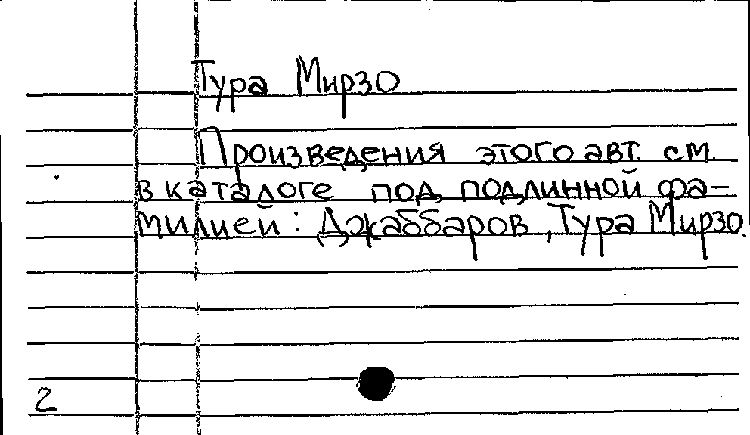 Тура Мирзо
Произведения этого авт. см.
в каталоге под подлинной фа-
милией: Джаббаров, Тура Мирзо.
2